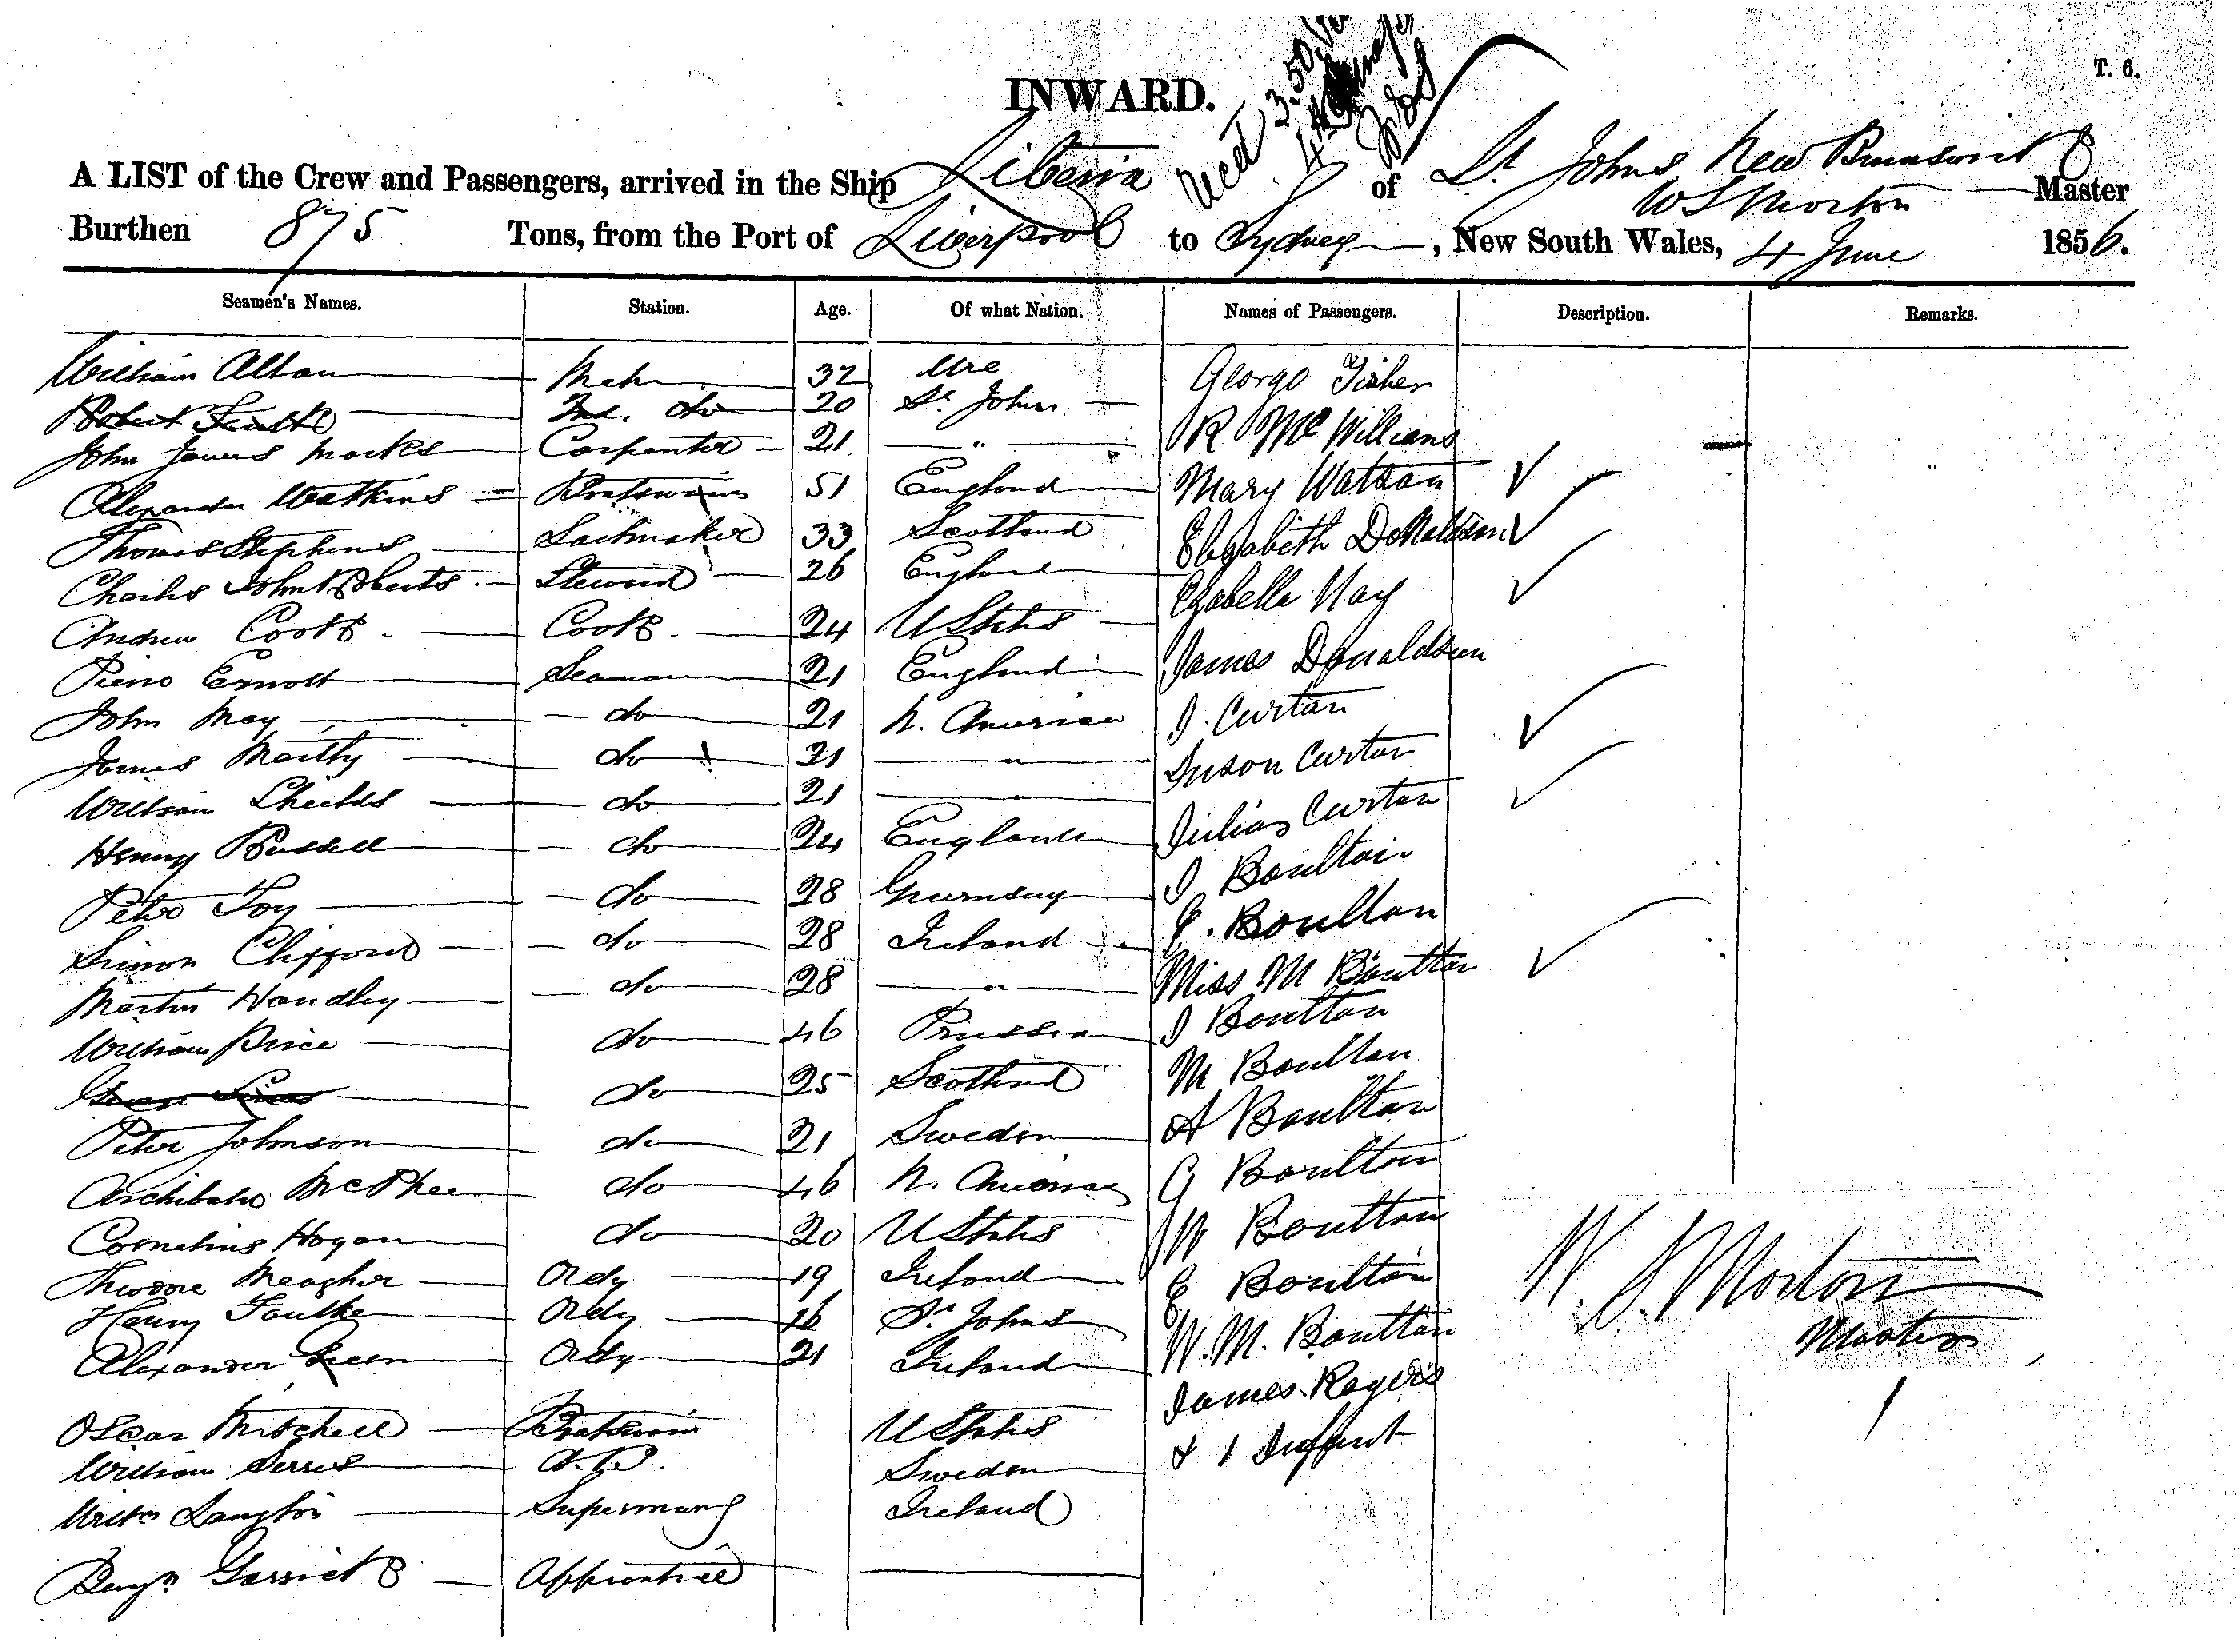 T. 6.
INWARD.
A LIST of the Crew and Passengers, arrived in the Ship Liberia of St Johns New Brunswick
W S Morton Master
Burthen 875 Tons, from the Port of Liverpool to Sydney, New South Wales, 4 June 1856.
Seamen's Names. Station. Age. Of what Nation. Names of Passengers. Description. Remarks.
William Alban 32 George Fisher
Robert do 20 St. John R McWilliams
John James Marks Carpenter 21 " Mary Watson
Alexander Watkins Boatswain 51 England Elizabeth Donaldson
Thomas Stephens Sailmaker 33 Scotland Isabella Hay
Charles John Roberts Steward 26 England
Andrew Cook Cook 24 U States James Donaldson
Seaman 21 England
John May do 21 N. America J. Curtan
James do 21 " Susan Curtan
William Shields do 21 " Julias Curtan
Henry Russell do 24 England J. Boultain
Peter do 28 Guernsey E. Boulton
Simon Clifford do 28 Ireland Miss M Boulton
Martin Handley do 28 " J Boulton
William Price do 46 Prussia M Boulton
do 25 Scotland A Boulton
Peter Johnson do 21 Sweden G Boulton
Archibald McPhee do 46 N. America W Boulton
Cornelius Hogan do 20 U States E Boulton
Meagher Ordy 19 Ireland W. M. Boulton
Henry Ordy 16 St. Johns James Rogers
Alexander Green Ordy 21 Ireland & 1 Infant
W. S. Morton
Master
Oscar Mitchell Boatswain U States
William Sweden
Langton Ireland
Benjn Garrick Apprentice